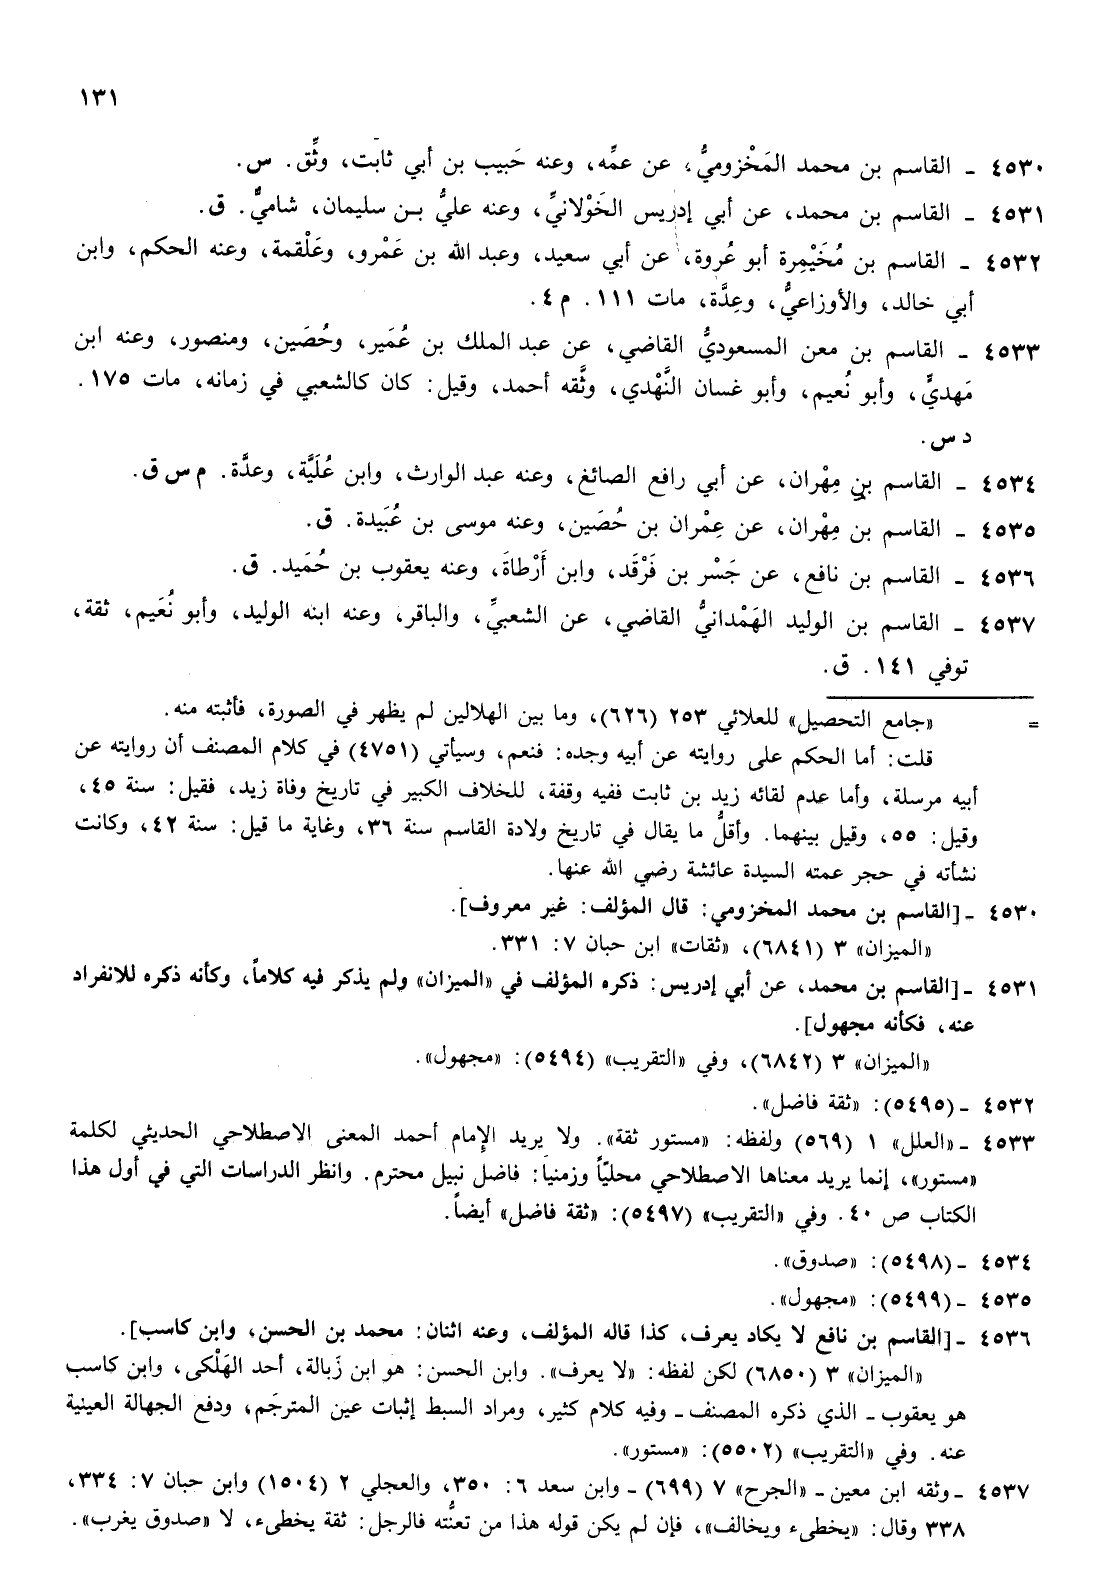 ١٣١
٤٥٣٠ ـ القاسم بن محمد المَخْزوميُّ، عن عمِّه، وعنه حَبيب بن أبي ثابت، وثِّق. س.
٤٥٣١ ـ القاسم بن محمد، عن أبي إدريس الخَوْلانيِّ، وعنه عليُّ بـن سليمان، شاميٌّ. ق.
٤٥٣٢ ـ القاسم بن مُخَيْمِرة أبو عُروة، عن أبي سعيد، وعبد الله بن عَمْرو، وعَلْقمة، وعنه الحكم، وابن
أبي خالد، والأوزاعيُّ، وعِدَّة، مات ١١١. م ٤.
٤٥٣٣ ـ القاسم بن معن المسعوديُّ القاضي، عن عبد الملك بن عُمَير، وحُصَين، ومنصور، وعنه ابن
مَهديٍّ، وأبو نُعيم، وأبو غسان النَّهْدي، وثَّقه أحمد، وقيل: كان كالشعبي في زمانه، مات ١٧٥.
د س.
٤٥٣٤ ـ القاسم بن مِهْران، عن أبي رافع الصائغ، وعنه عبد الوارث، وابن عُلَيَّة، وعدَّة. م س ق.
٤٥٣٥ ـ القاسم بن مِهْران، عن عِمْران بن حُصَين، وعنه موسى بن عُبَيدة. ق.
٤٥٣٦ ـ القاسم بن نافع، عن جَسْر بن فَرْقد، وابن أَرْطاةَ، وعنه يعقوب بن حُمَيد. ق.
٤٥٣٧ ـ القاسم بن الوليد الهَمْدانيُّ القاضي، عن الشعبيِّ، والباقر، وعنه ابنه الوليد، وأبو نُعَيم، ثقة،
توفي ١٤١. ق.
= «جامع التحصيل» للعلائي ٢٥٣ (٦٢٦)، وما بين الهلالين لم يظهر في الصورة، فأثبته منه.
قلت: أما الحكم على روايته عن أبيه وجده: فنعم، وسيأتي (٤٧٥١) في كلام المصنف أن روايته عن
أبيه مرسلة، وأما عدم لقائه زيد بن ثابت ففيه وقفة، للخلاف الكبير في تاريخ وفاة زيد، فقيل: سنة ٤٥،
وقيل: ٥٥، وقيل بينهما. وأقلُّ ما يقال في تاريخ ولادة القاسم سنة ٣٦، وغاية ما قيل: سنة ٤٢، وكانت
نشأته في حجر عمته السيدة عائشة رضي الله عنها.
٤٥٣٠ ـ [القاسم بن محمد المخزومي: قال المؤلف: غير معروف].
«الميزان» ٣ (٦٨٤١)، «ثقات» ابن حبان ٧: ٣٣١.
٤٥٣١ ـ [القاسم بن محمد، عن أبي إدريس: ذكره المؤلف في «الميزان» ولم يذكر فيه كلاماً، وكأنه ذكره للانفراد
عنه، فكأنه مجهول].
«الميزان» ٣ (٦٨٤٢)، وفي «التقريب» (٥٤٩٤): «مجهول».
٤٥٣٢ ـ (٥٤٩٥): «ثقة فاضل».
٤٥٣٣ ـ «العلل» ١ (٥٦٩) ولفظه: «مستور ثقة». ولا يريد الإمام أحمد المعنى الاصطلاحي الحديثي لكلمة
«مستور»، إنما يريد معناها الاصطلاحي محليّاً وزمنياً: فاضل نبيل محترم. وانظر الدراسات التي في أول هذا
الكتاب ص ٤٠. وفي «التقريب» (٥٤٩٧): «ثقة فاضل» أيضاً.
٤٥٣٤ ـ (٥٤٩٨): «صدوق».
٤٥٣٥ ـ (٥٤٩٩): «مجهول».
٤٥٣٦ ـ [القاسم بن نافع لا يكاد يعرف، كذا قاله المؤلف، وعنه اثنان: محمد بن الحسن، وابن كاسب].
«الميزان» ٣ (٦٨٥٠) لكن لفظه: «لا يعرف». وابن الحسن: هو ابن زَبالة، أحد الهَلْكى، وابن كاسب
هو يعقوب ـ الذي ذكره المصنف ـ وفيه كلام كثير، ومراد السبط إثبات عين المترجَم، ودفع الجهالة العينية
عنه. وفي «التقريب» (٥٥٠٢): «مستور».
٤٥٣٧ ـ وثقه ابن معين ـ «الجرح» ٧ (٦٩٩) ـ وابن سعد ٦: ٣٥٠، والعجلي ٢ (١٥٠٤) وابن حبان ٧: ٣٣٤،
٣٣٨ وقال: «يخطىء ويخالف»، فإن لم يكن قوله هذا من تعنُّته فالرجل: ثقة يخطىء، لا «صدوق يغرب».